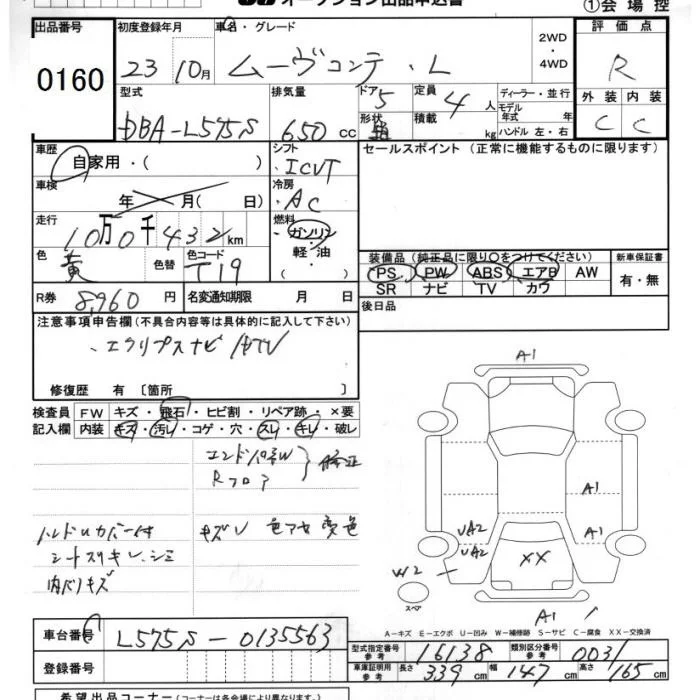 オークション出品申込書
①会場控
出品番号
0160
初度登録年月
23 10月
車名・グレード
ムーヴコンテ・L
2WD
・
4WD
評価点
R
型式
DBA-L575S
排気量
650 cc
ドア
5
形状
定員
4 人
積載
kg
ディーラー・並行
モデル年式 年
ハンドル 左・右
外装 内装
C C
車歴
自家用・( )
シフト
・ICVT
セールスポイント(正常に機能するものに限ります)
車検
年 月( 日)
冷房
・AC
走行
10万0千432km
燃料
・ガソリン
軽・油
色
黄
色替
色コード
T19
装備品(純正品に限り○をつけてください)
PS PW ABS エアB AW
SR ナビ TV カワ
新車保証書
有・無
R券
8,960 円
名変通知期限 月 日
後日品
注意事項申告欄(不具合内容等は具体的に記入して下さい)
、エクリプスナビ/TV
修復歴 有〔箇所 〕
検査員
記入欄
FW キズ・飛石・ヒビ割・リペア跡・×要
内装 キズ・汚レ・コゲ・穴・スレ・キレ・破レ
Rフロア
修正
キズU 色アセ 変色
ハンドルカバー付
シートスリキレ、シミ
内バリキズ
A1
A1
A1
UA2
UA2
XX
W2
スペア
A1
A-キズ E-エクボ U-凹み W-補修跡 S-サビ C-腐食 XX-交換済
車台番号
L575S-0135563
登録番号
型式指定番号
参考
16138
類別区分番号
参考
0031
車庫証明用
参考
長さ 339 cm
幅 147 cm
高さ 165 cm
希望出品コーナー(コーナーは各会場により異なります。)